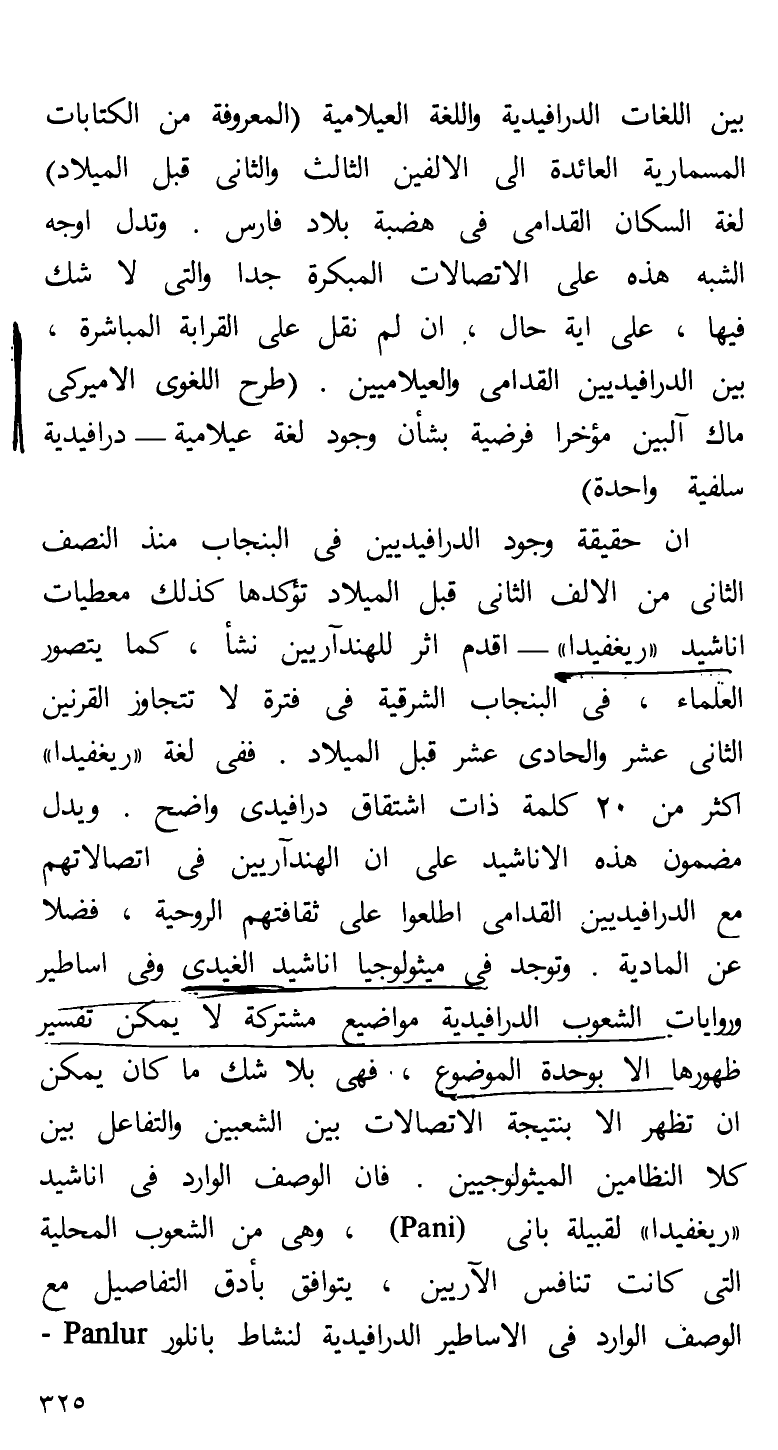 بين اللغات الدرافيدية واللغة العيلامية (المعروفة من الكتابات
المسمارية العائدة الى الالفين الثالث والثانى قبل الميلاد)
لغة السكان القدامى فى هضبة بلاد فارس . وتدل اوجه
الشبه هذه على الاتصالات المبكرة جدا والتى لا شك
فيها ، على اية حال ، ان لم نقل على القرابة المباشرة ،
بين الدرافيديين القدامى والعيلاميين . (طرح اللغوى الاميركى
ماك آلبين مؤخرا فرضية بشأن وجود لغة عيلامية — درافيدية
سلفية واحدة)
ان حقيقة وجود الدرافيديين فى البنجاب منذ النصف
الثانى من الالف الثانى قبل الميلاد تؤكدها كذلك معطيات
اناشيد «ريغفيدا» — اقدم اثر للهندآريين نشأ ، كما يتصور
العلماء ، فى البنجاب الشرقية فى فترة لا تتجاوز القرنين
الثانى عشر والحادى عشر قبل الميلاد . ففى لغة «ريغفيدا»
اكثر من ٢٠ كلمة ذات اشتقاق درافيدى واضح . ويدل
مضمون هذه الاناشيد على ان الهندآريين فى اتصالاتهم
مع الدرافيديين القدامى اطلعوا على ثقافتهم الروحية ، فضلا
عن المادية . وتوجد في ميثولوجيا اناشيد الغيدى وفى اساطير
وروايات الشعوب الدرافيدية مواضيع مشتركة لا يمكن تفسير
ظهورها الا بوحدة الموضوع ، فهى بلا شك ما كان يمكن
ان تظهر الا بنتيجة الاتصالات بين الشعبين والتفاعل بين
كلا النظامين الميثولوجيين . فان الوصف الوارد فى اناشيد
«ريغفيدا» لقبيلة بانى (Pani) ، وهى من الشعوب المحلية
التى كانت تنافس الآريين ، يتوافق بأدق التفاصيل مع
الوصف الوارد فى الاساطير الدرافيدية لنشاط بانلور Panlur -
٣٢٥